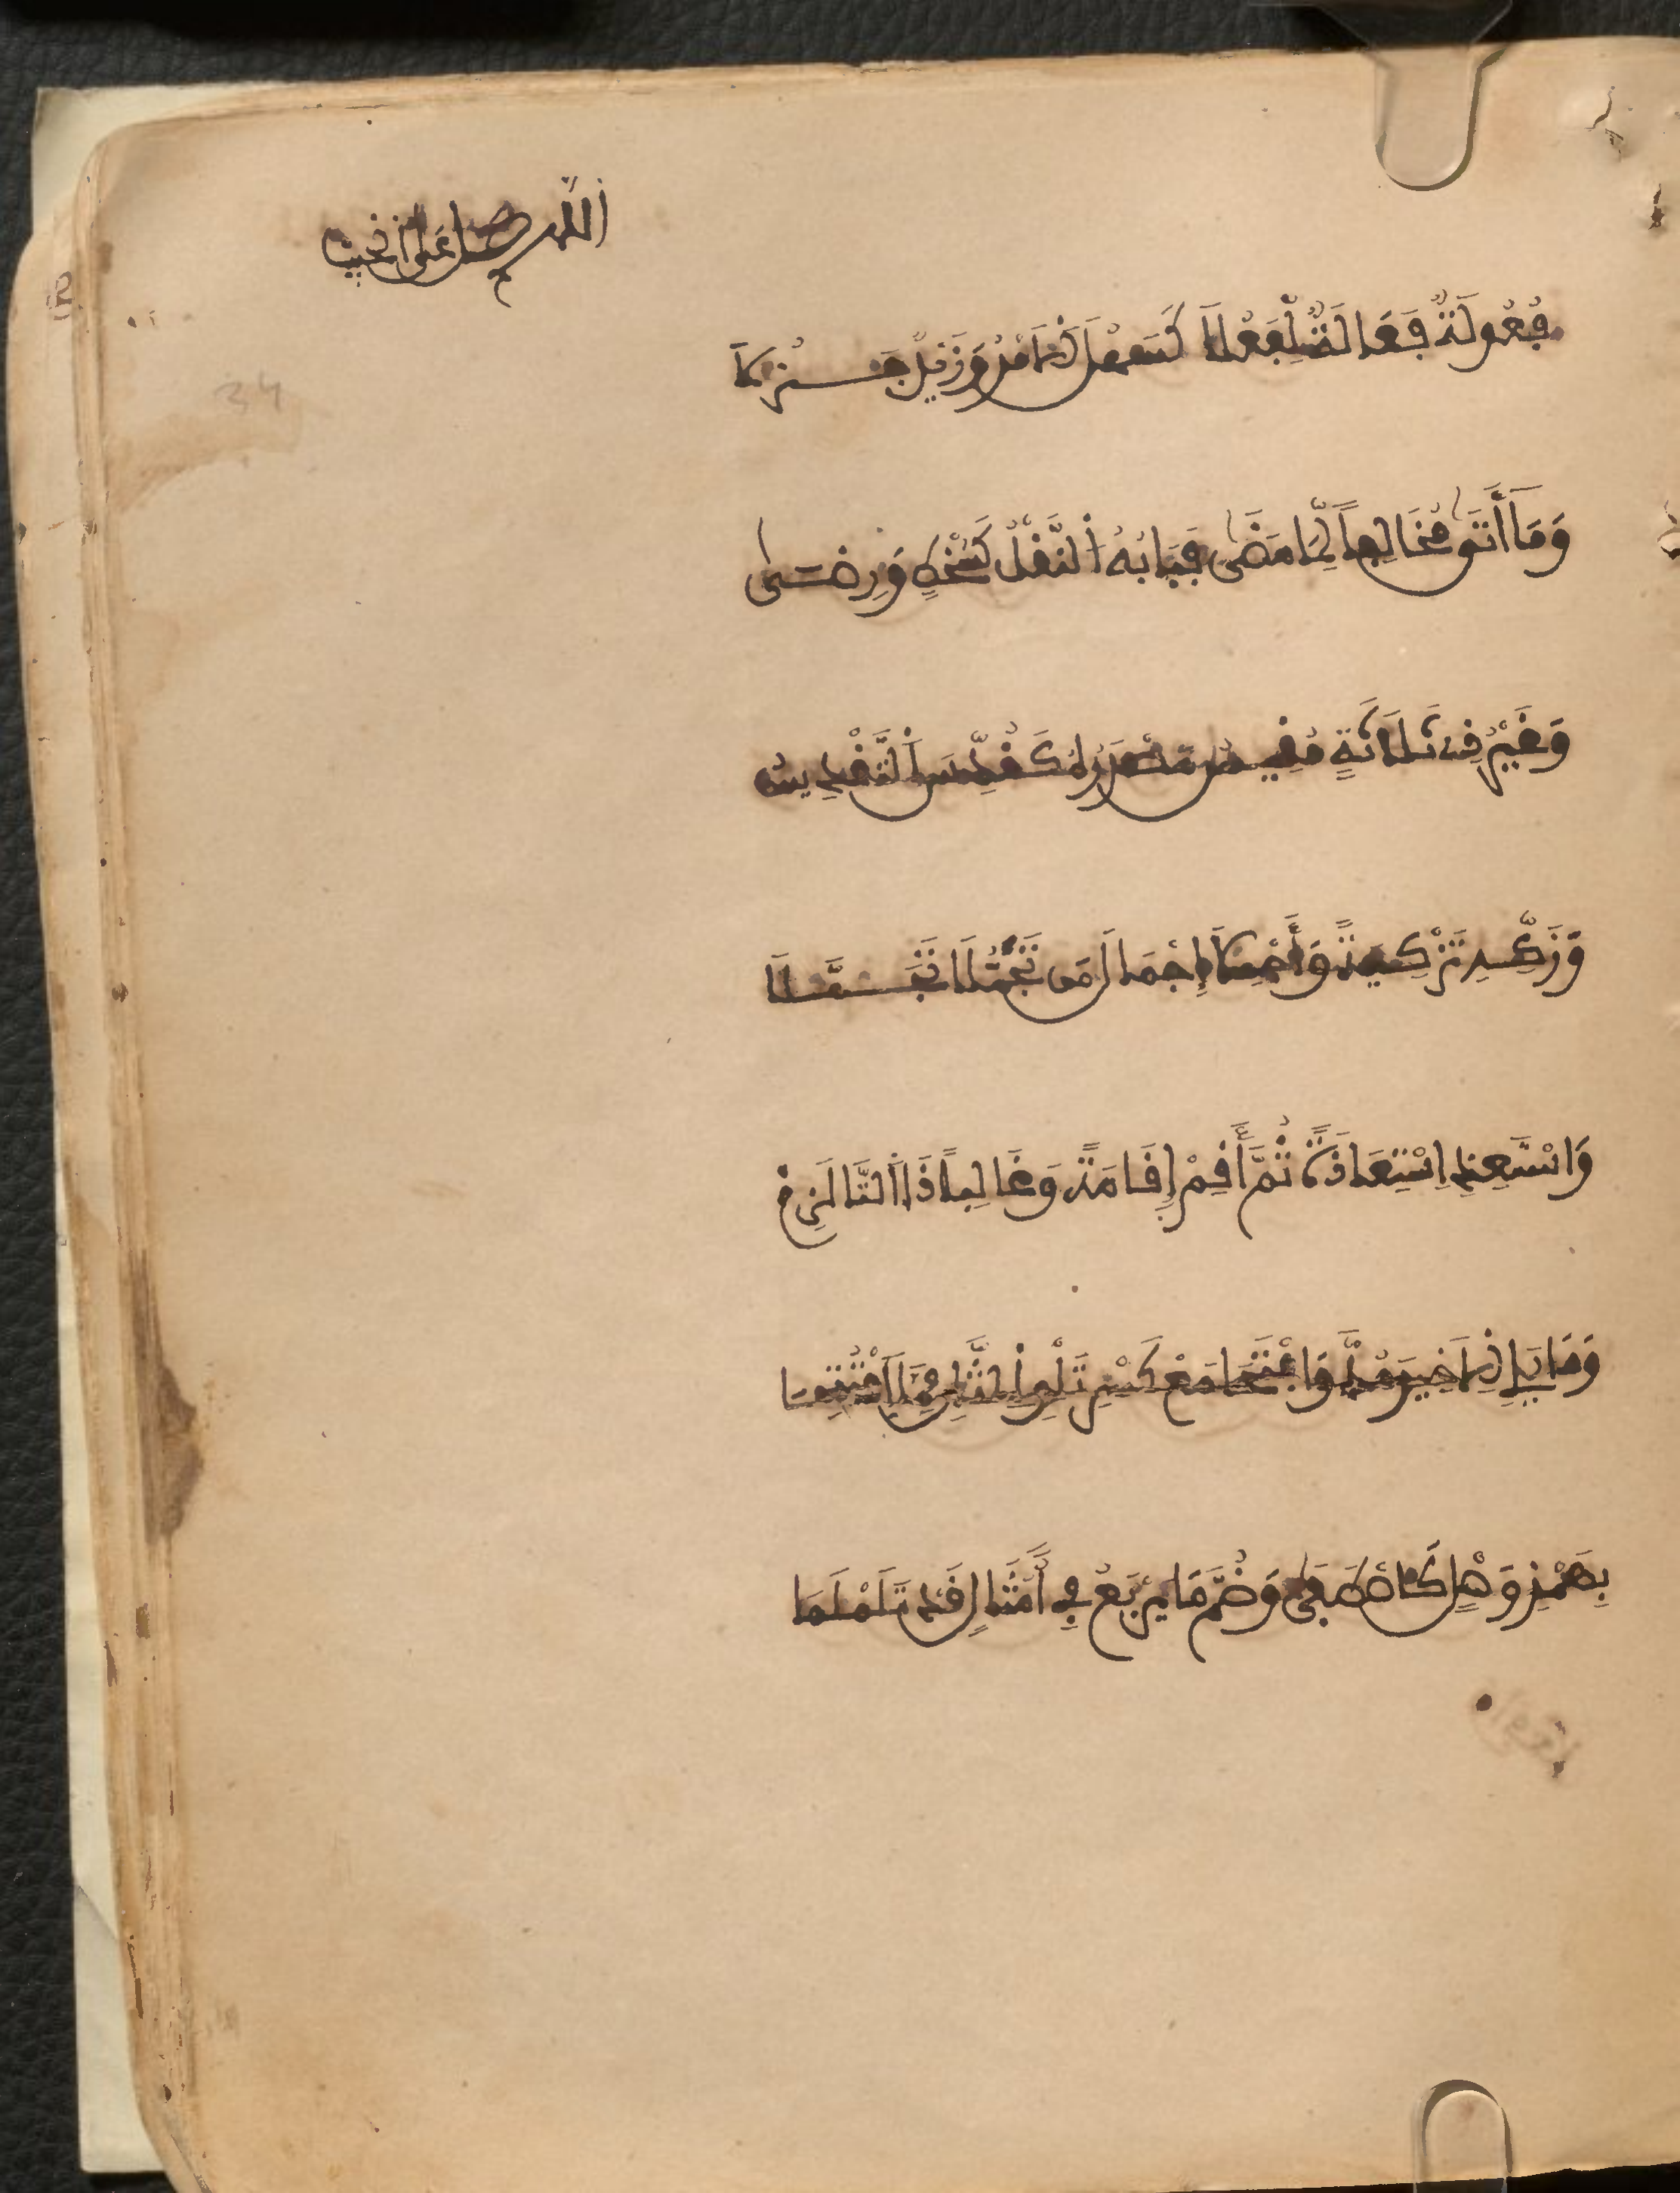 اللهم صل على النبي
فُعُولَةٌ فَعَالَةٌ لِفَعُلَا كَسَهُلَ الْأَمْرُ وَزَيْدٌ جَزُلَا
وَمَا أَتَى مُخَالِفاً لِمَا مَضَى فَبَابُهُ النَّقْلُ كَسُخْطٍ وَرِضَى
وَغَيْرُ ذِي ثَلَاثَةٍ مَقِيسُ مَصْدَرُهُ كَقُدِّسَ التَّقْدِيسُ
وَزَكِّهِ تَزْكِيَةً وَأَجْمِلَا إِجْمَالَ مَنْ تَجَمُّلًا تَجَمَّلَا
وَاسْتَعِذِ اسْتِعَاذَةً ثُمَّ أَقِمْ إِقَامَةً وَغَالِباً ذَا التَّا لَزِمْ
وَمَا يَلِي الْأَخِيرَ مُدَّ وَافْتَحَا مَعْ كَسْرِ تِلْوِ الثَّانِ مِمَّا افْتُتِحَا
بِهَمْزِ وَصْلٍ كَاصْطَفَى وَضُمَّ مَا يَرْبَعُ فِي أَمْثَالِ قَدْ تَلَمْلَمَا
34